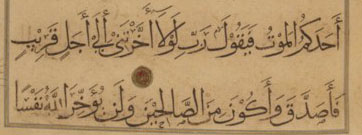 أَحَدَكُمُ الْمَوْتُ فَيَقُولَ رَبِّ لَوْلَا أَخَّرْتَنِي إِلَىٰ أَجَلٍ قَرِيبٍ
فَأَصَّدَّقَ وَأَكُونَ مِنَ الصَّالِحِينَ وَلَنْ يُؤَخِّرَ اللَّهُ نَفْسًا